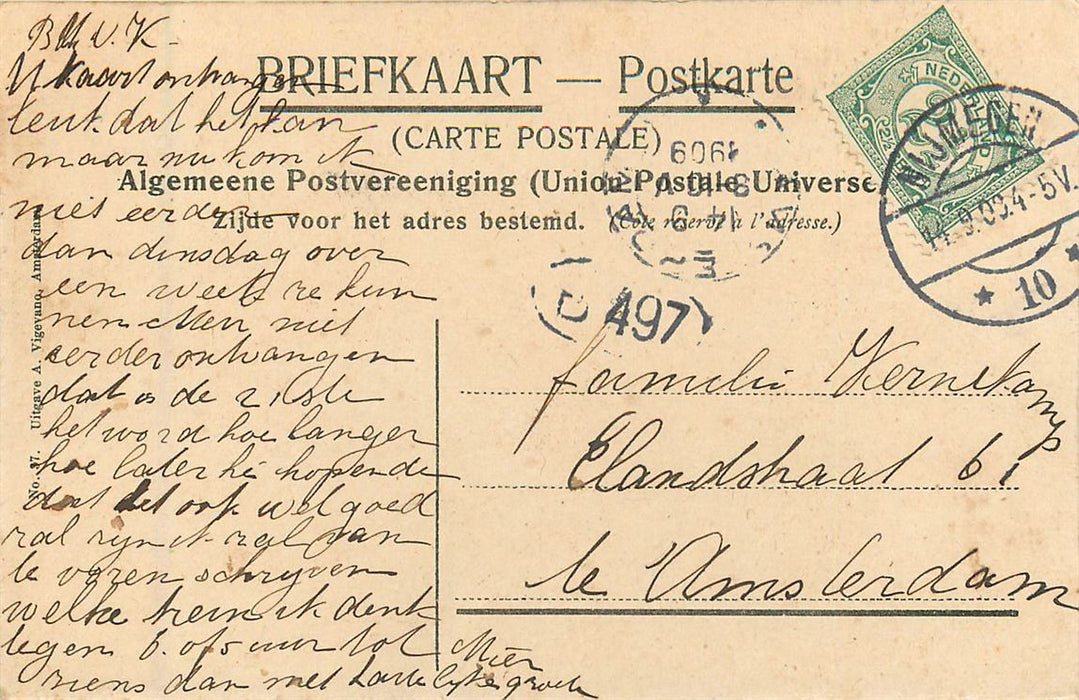 BRIEFKAART — Postkarte
(CARTE POSTALE)
Algemeene Postvereeniging (Union Postale Universe
Zijde voor het adres bestemd. (Côté réservé à l'adresse.)
No. 37. Uitgave A. Vigevano, Amsterdam
NEDERLAND
NIJMEGEN
9.09.4-5V.
10
1909
497
U kaart ontvangen
leuk dat het kan
maar nu kom ik
niet eerder
dan dinsdag over
een week ze kun
nen Mien niet
eerder ontvangen
dat is de 21ste
het word hoe langer
hoe later hé hopende
dat het ook wel goed
zal zyn ik zal van
te voren schryven
welke trein ik denk
tegen 6. of 5 uur tot
ziens dan met hartelyke groete
Mien
familie Vernekamp
Elandstraat 61
te Amsterdam